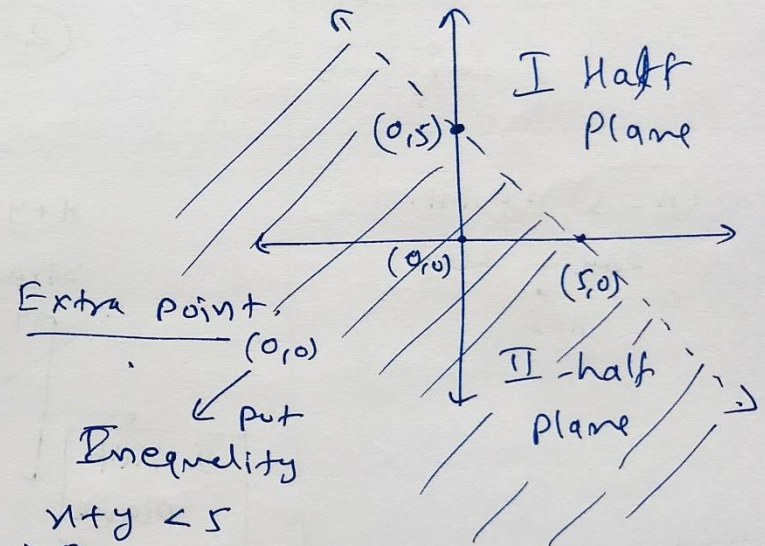 I Half
Plane
(0,5)
(0,0)
(5,0)
Extra point.
(0,0)
put
Inequality
x+y < 5
II - half
plane